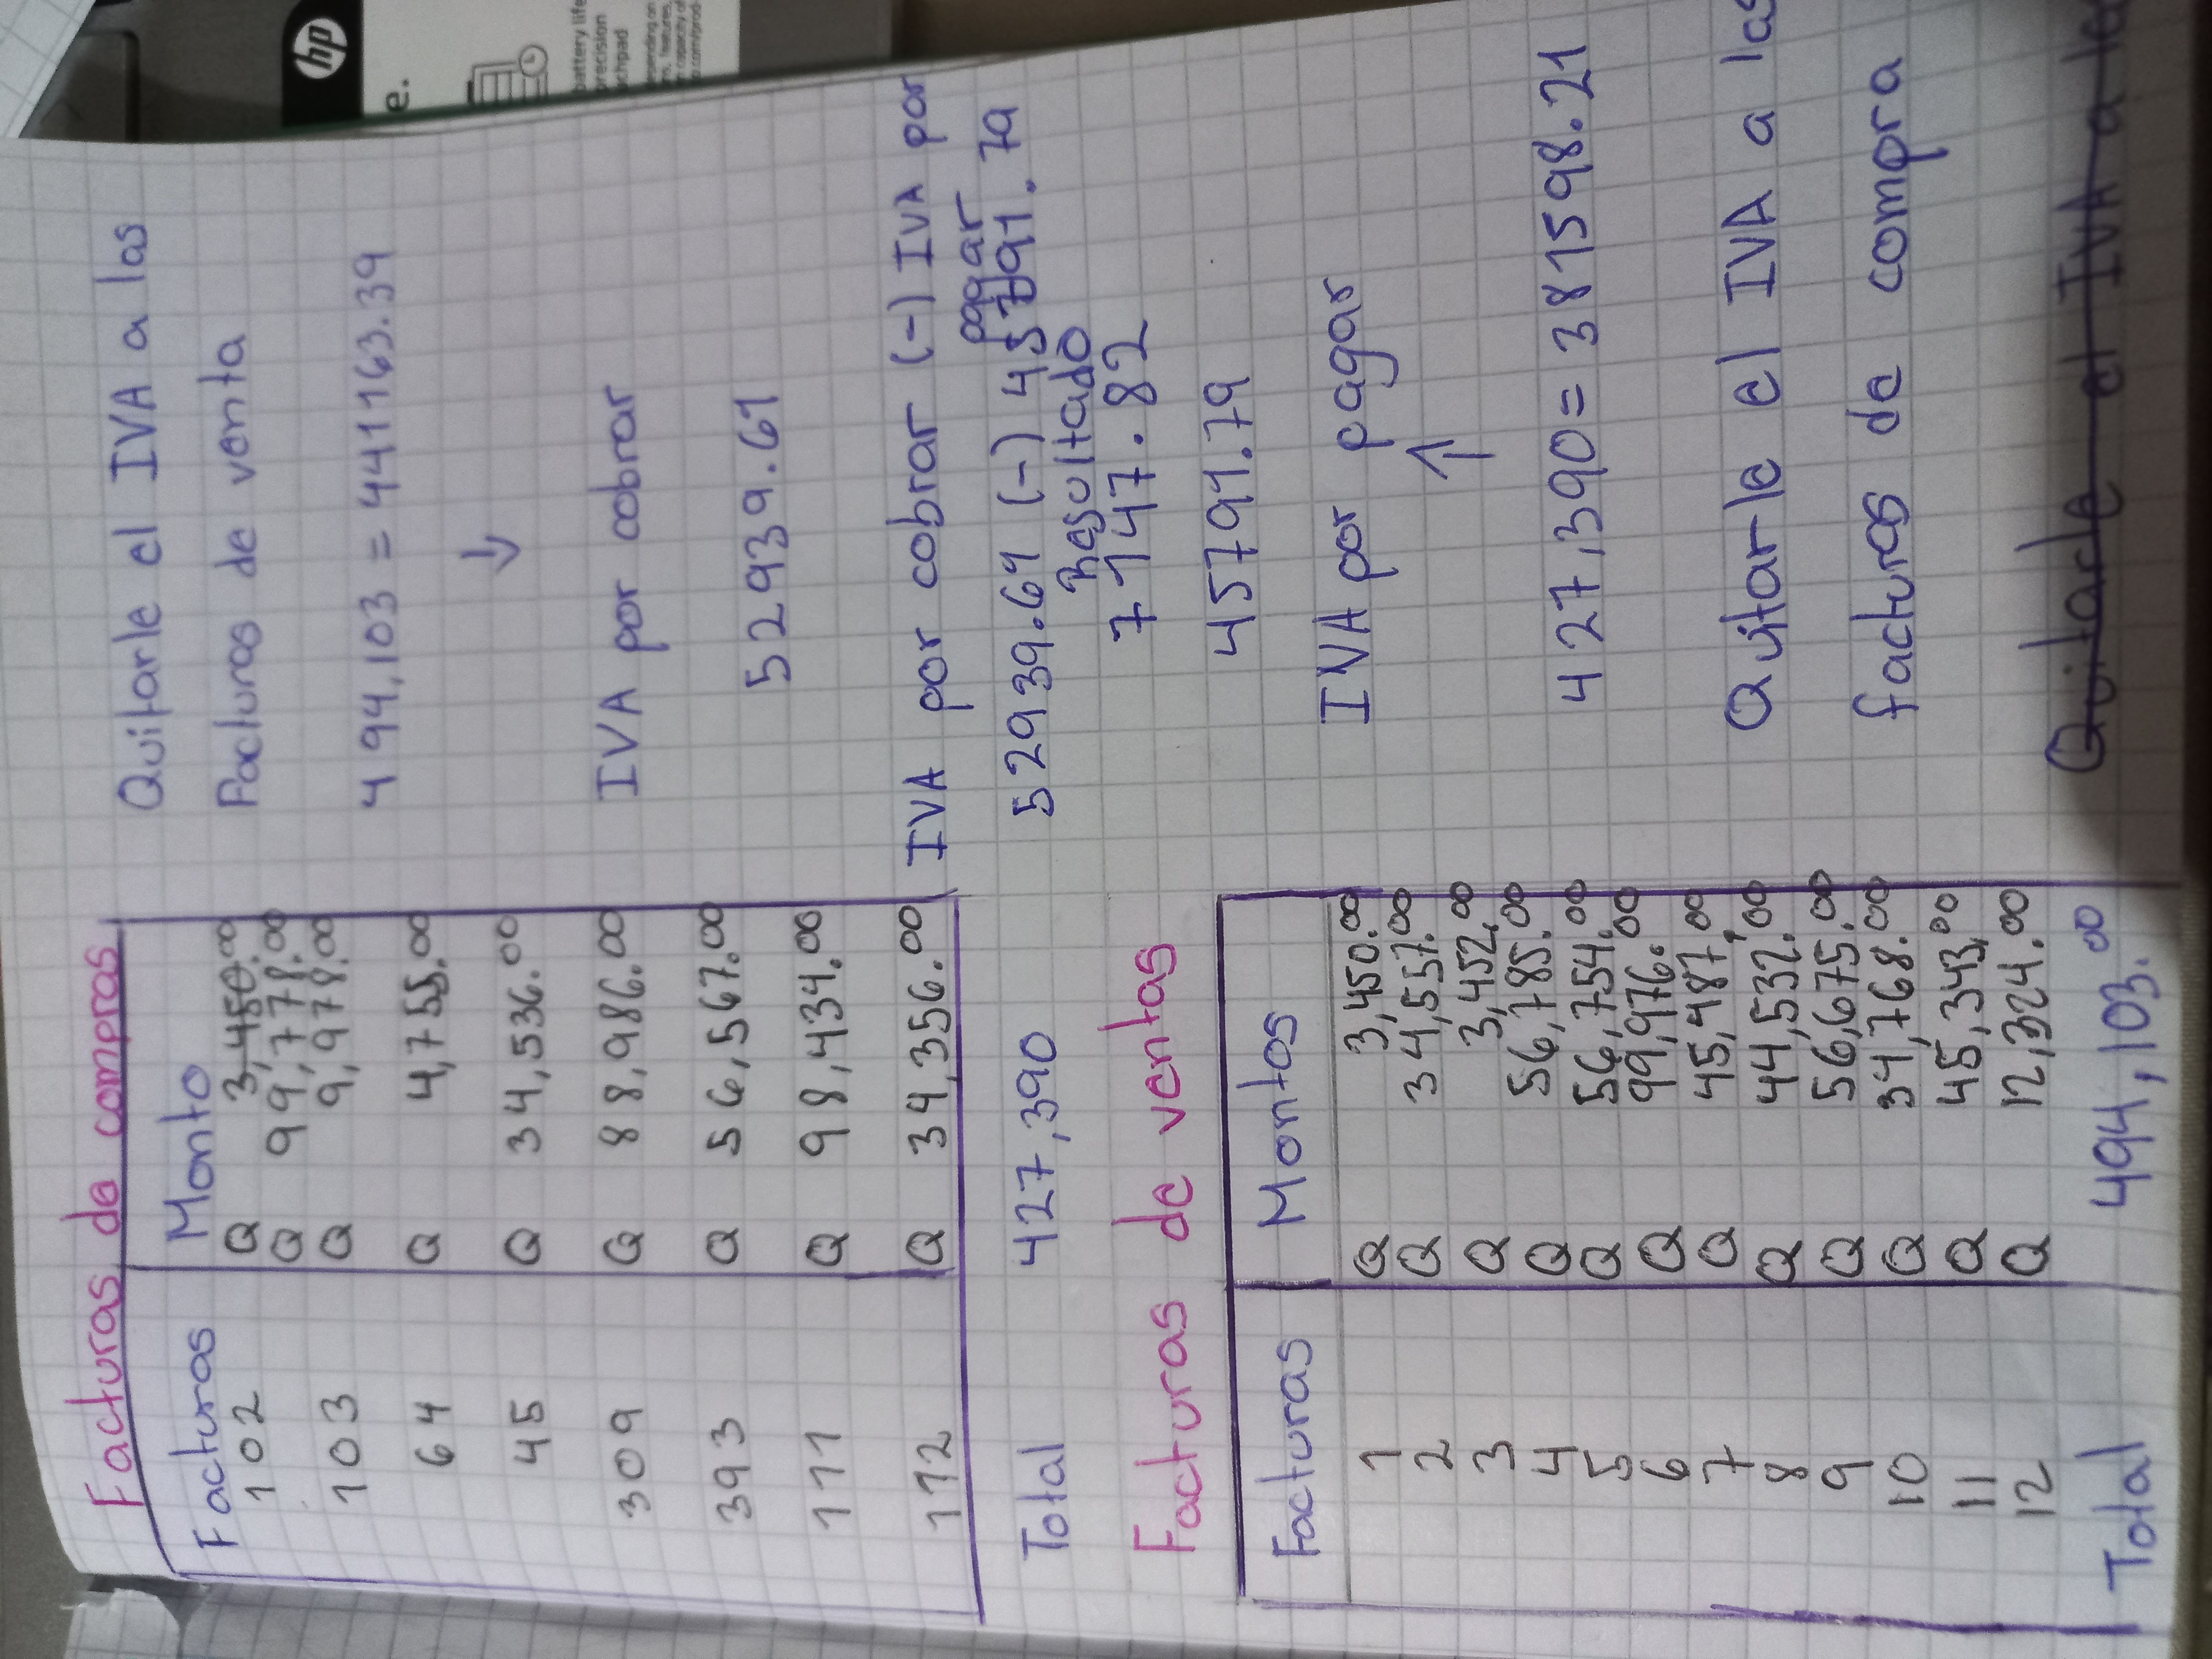 Facturas de compras
Facturas Monto
102 Q 3,450.00
Q 99,778.00
103 Q 9,978.00
64 Q 4,755.00
45 Q 34,536.00
309 Q 88,986.00
393 Q 56,567.00
111 Q 98,434.00
112 Q 34,356.00
Total 427,390
Facturas de ventas
Facturas Montos
1 Q 3,450.00
2 Q 34,557.00
3 Q 3,452.00
4 Q 56,785.00
5 Q 56,754.00
6 Q 99,976.00
7 Q 45,487.00
8 Q 44,532.00
9 Q 56,675.00
10 Q 34,768.00
11 Q 45,343.00
12 Q 12,324.00
Total 494,103.00
Quitarle el IVA a las
Facturas de venta
494,103 = 441163.39
↓
IVA por cobrar
52939.61
IVA por cobrar (-) IVA por
pagar
52939.61 (-) 45791.79
Resultado
7147.82
45791.79
IVA por pagar
↑
427,390 = 381598.21
Quitarle el IVA a las
facturas de compra
Quitarle el IVA a las
hp
e.
battery life
precision